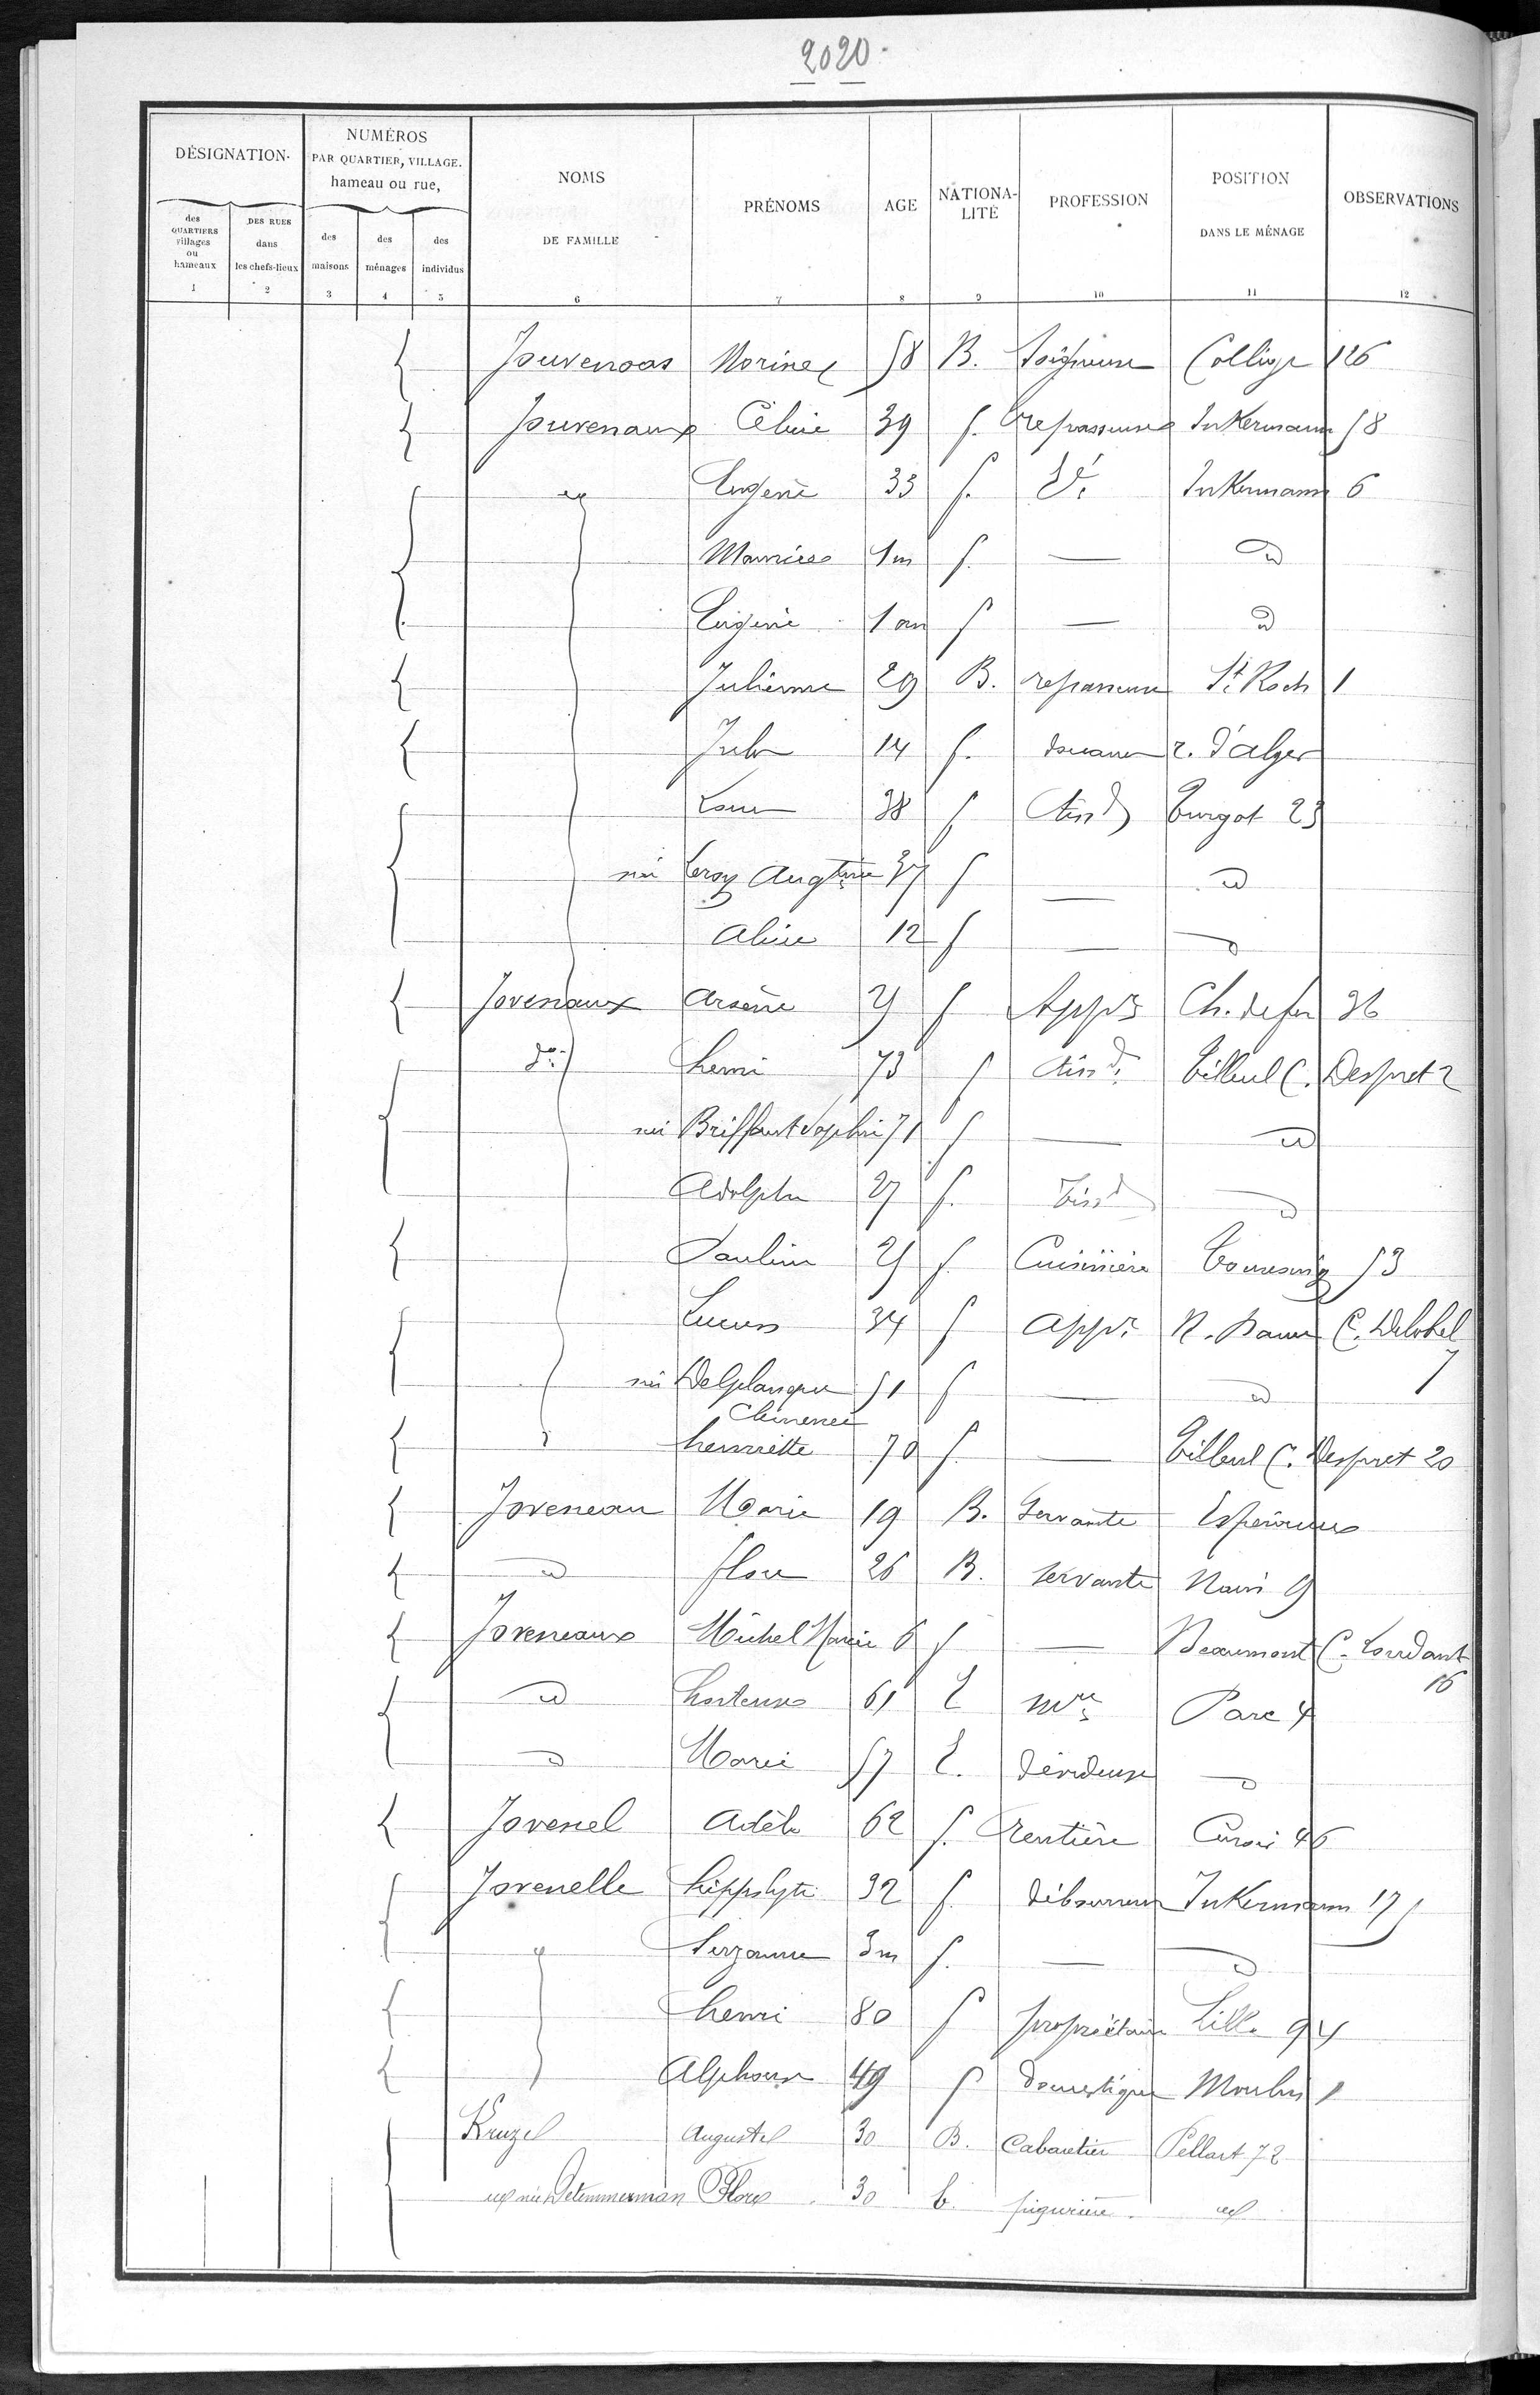 2020.
DÉSIGNATION. NUMÉROS PAR QUARTIER, VILLAGE. hameau ou rue, NOMS DE FAMILLE PRÉNOMS AGE NATIONALITÉ PROFESSION POSITION DANS LE MÉNAGE OBSERVATIONS
des QUARTIERS villages ou hameaux DES RUES dans les chefs-lieux des maisons des ménages des individus
1 2 3 4 5 6 7 8 9 10 11 12
58 B. Soigneuse Collège 126
Jouvenaux Céline 39 f. repasseuse Inkermann 58
id Eugénie 33 f. Inkermann 6
Maurice 1m f. — id
Eugénie 1 an f — id
Julienne 29 B. repasseuse St. Roch 1
Jules 14 f. r. d'alger
38 f tissd Turgot 23
née Leroy Augtine 37 f — id
Aline 12 f — d
Jovenaux Arsène f Appr Ch. de fer 36
do. henri 73 f tissd. Tilleul C. Despret 2
née Briffaut Sophie 71 f — id
Adolphe 27 f. tissd d
Pauline f. Cuisinière Tourcoing 53
34 f appr. N. Dame C. Delobel 7
née Delplanque 51 f — id
henriette 70 f. — Tilleul C. Despret 20
Joveneau Marie 19 B. Servante
id flore 26 B. servante Nain 9
Joveneaux Michel Marie 6 f — Beaumont C. 16
id hortense 61 mre Parc 4
d Marie 57 dévideuse d
Jovenel Adèle 62 f. rentière 46
Jovenelle hippolyte 32 f. débourreur Inkermann 17
Suzanne 3m f. — d
henri 80 f propriétaire Lille 94
Alphonse 49 f domestique Moulin 1
Kruzel Auguste 30 B. Cabaretier Pellart 72
née Detemmerman Flore 30 b. piqurière id